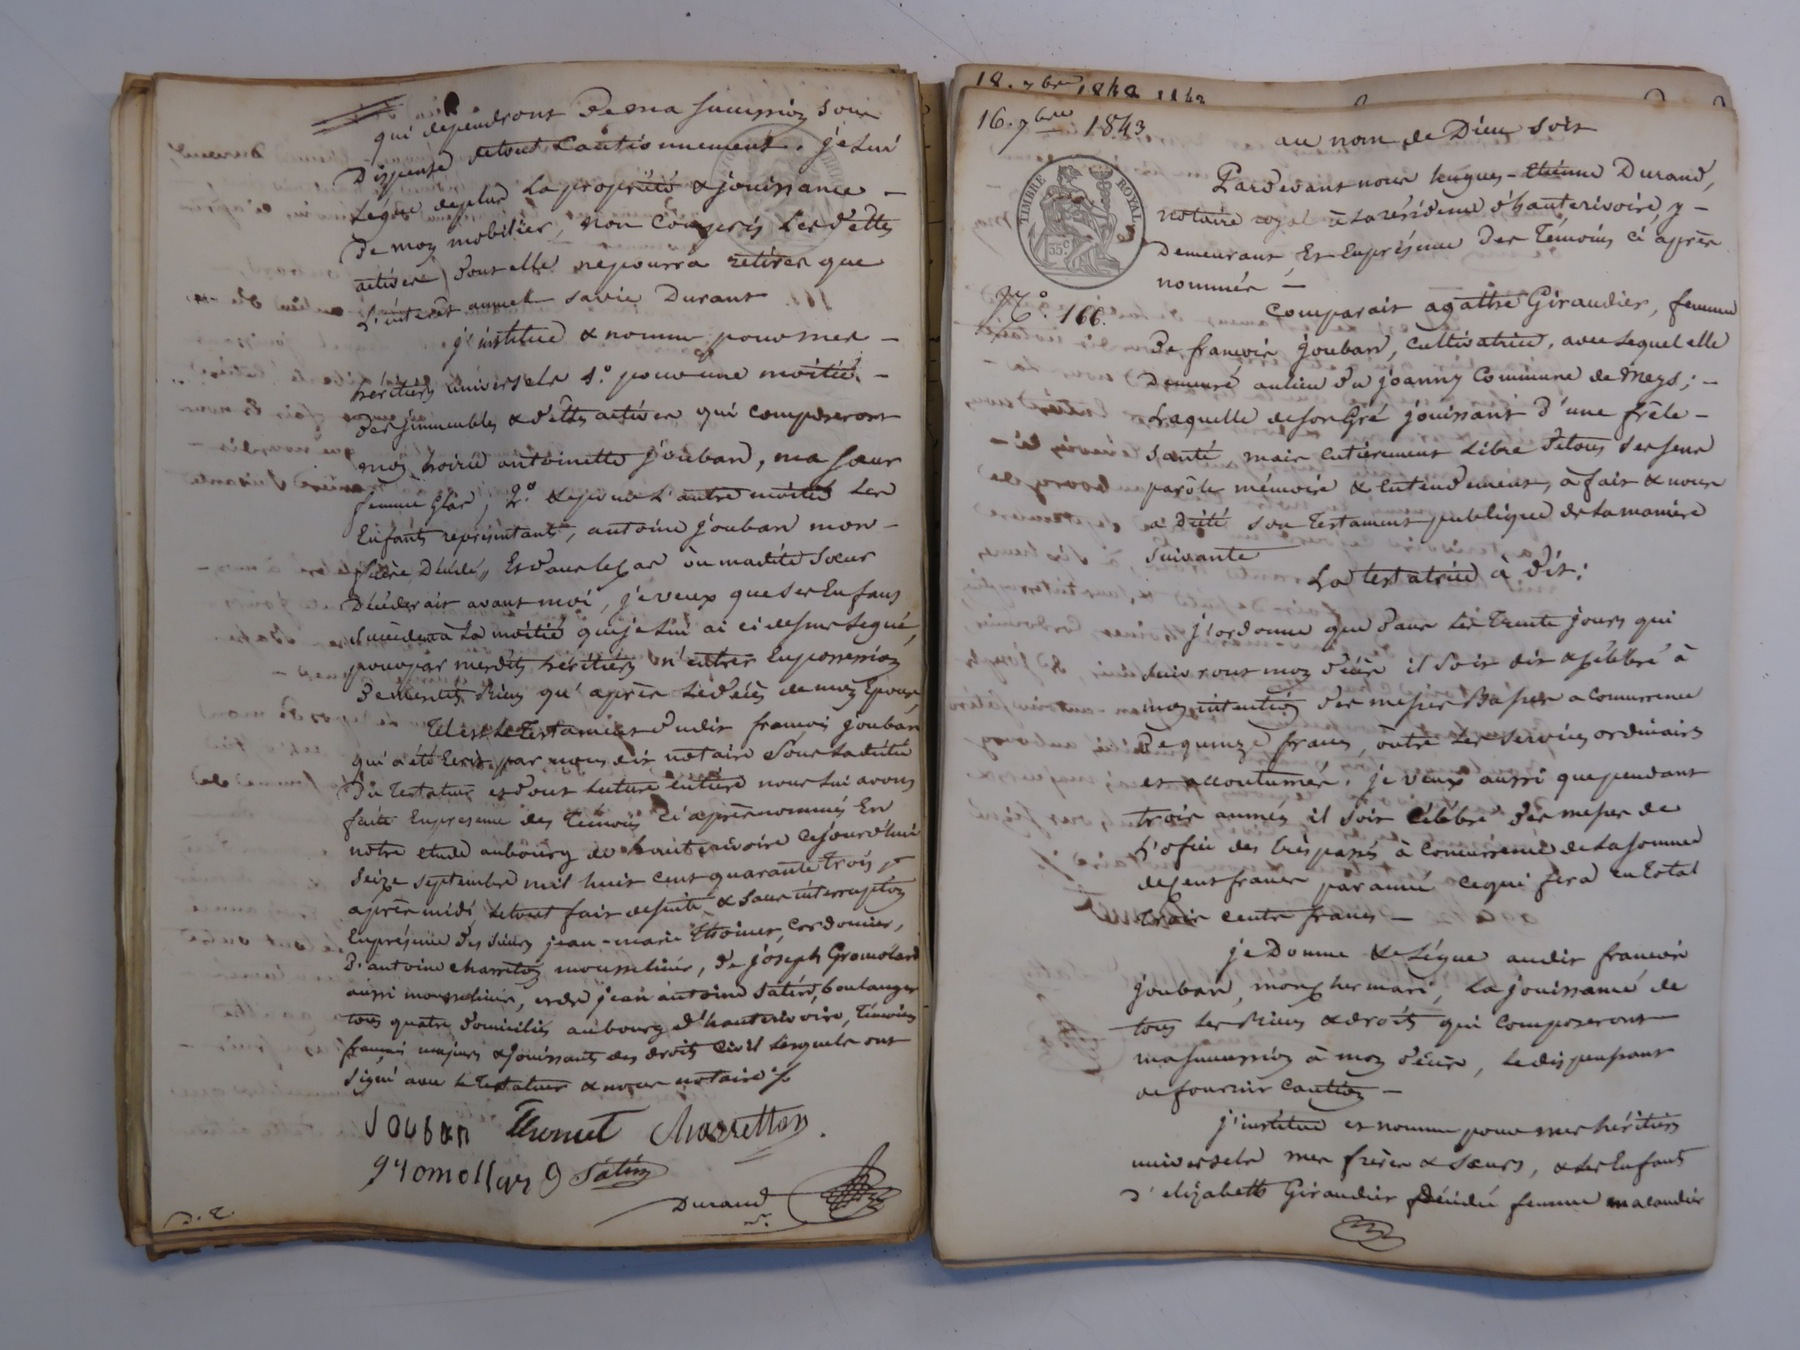 qui dependront de ma succession sous
dispense de tout cautionnement. je lui
Légue deplus la propriété & jouissance –
de mon mobilier, non compris les dettes
actives) dont elle ne pourra retirer que
l'intérêt annuel sa vie Durant
j'institue & nomme pour mes –
héritiers universels 1.° pour une moitié –
des immeubles & dettes actives qui composeront
mon hoirie antoinette jouban, ma sœur
femme 2.° & pour l'autre moitié les
Enfants représentants, antoine jouban mon –
frère Décédé, Et dans le cas où madite sœur
Décéderait avant moi, je veux que ses Enfans
succedent à la moitié que je lui ai ci dessus Légué,
pour par mesdits héritiers n'entrer en possession
desdits Biens qu'après le décès de mon Epouse,
Tel est le Testament dudit françois jouban
qui a été Ecrit par nous dit notaire sous la dictée
du Testateur et dont lecture entière nous lui avons
faite En présence des témoins ci après nommés En
notre etude au bourg de hauterivoire cejourd'hui
seize septembre mil huit cent quarante trois
après midi le tout fait de suite & sans interruption
En présence des sieurs jean-marie Cordonnier,
d'antoine charretton mousselinier, de joseph Gromolard
aussi mousselinier, et de jean antoine satin, boulanger
tous quatre domiciliés au bourg d'hauterivoire, témoins
français majeurs & jouissants des droits civil Lesquels ont
signé avec le Testateur & nous notaire ./.
Jouban Charretton
gromollard Satin
Durand
n.re
D. E.
18. 7bre 1843 1843
16. 7bre 1843
au nom de Dieu soit
TIMBRE ROYAL
35 c
Pardevant nous hugues-Etienne Durand,
notaire royal à la résidence d'hauterivoire, y –
Demeurant, Et En présence des Témoins ci après
nommés –
N.° 166.
Comparait agathe Giraudier, femme
De francois jouban, cultivatrice, avec lequel elle
Demeure au lieu du joanny commune de Meys; –
Laquelle de son Gré jouissant d'une frêle –
santé mais entièrement Libre de tous ses sens
parôle mémoire & Entendement, à fait & nous
a Dicté son Testament publique de la manière
suivante
La testatrice à dit:
j'ordonne que dans les Trente jours qui
suivront mon décès il soit dit & célébré à
mon intention des messes Basses a concurrence
De quinze francs, outre les services ordinaires
et accoutumés. je veux aussi que pendant
trois années il soit célébré des messes de
l'ofice des trépassés à concurrence de la somme
de cent francs par année ce qui fera en total
trois cents francs –
je Donne & Légue audit francois
jouban, mon cher mari, La jouissance de
tous les Biens & droits qui composeront
ma succession à mon décès, le dispensant
de fournir caution –
j'institue et nomme pour mes héritiers
universels mes frères & sœurs, & les Enfants
d'elizabeth Giraudier Décédée femme